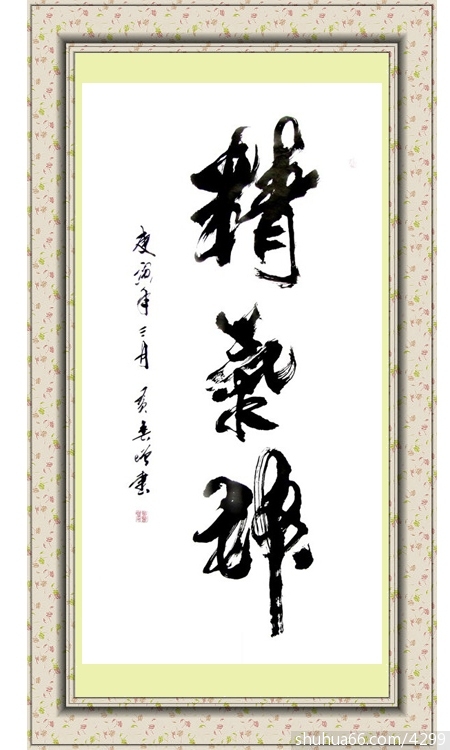 精氣神
庚寅年三月 黄
書
shuhua66.com/4299